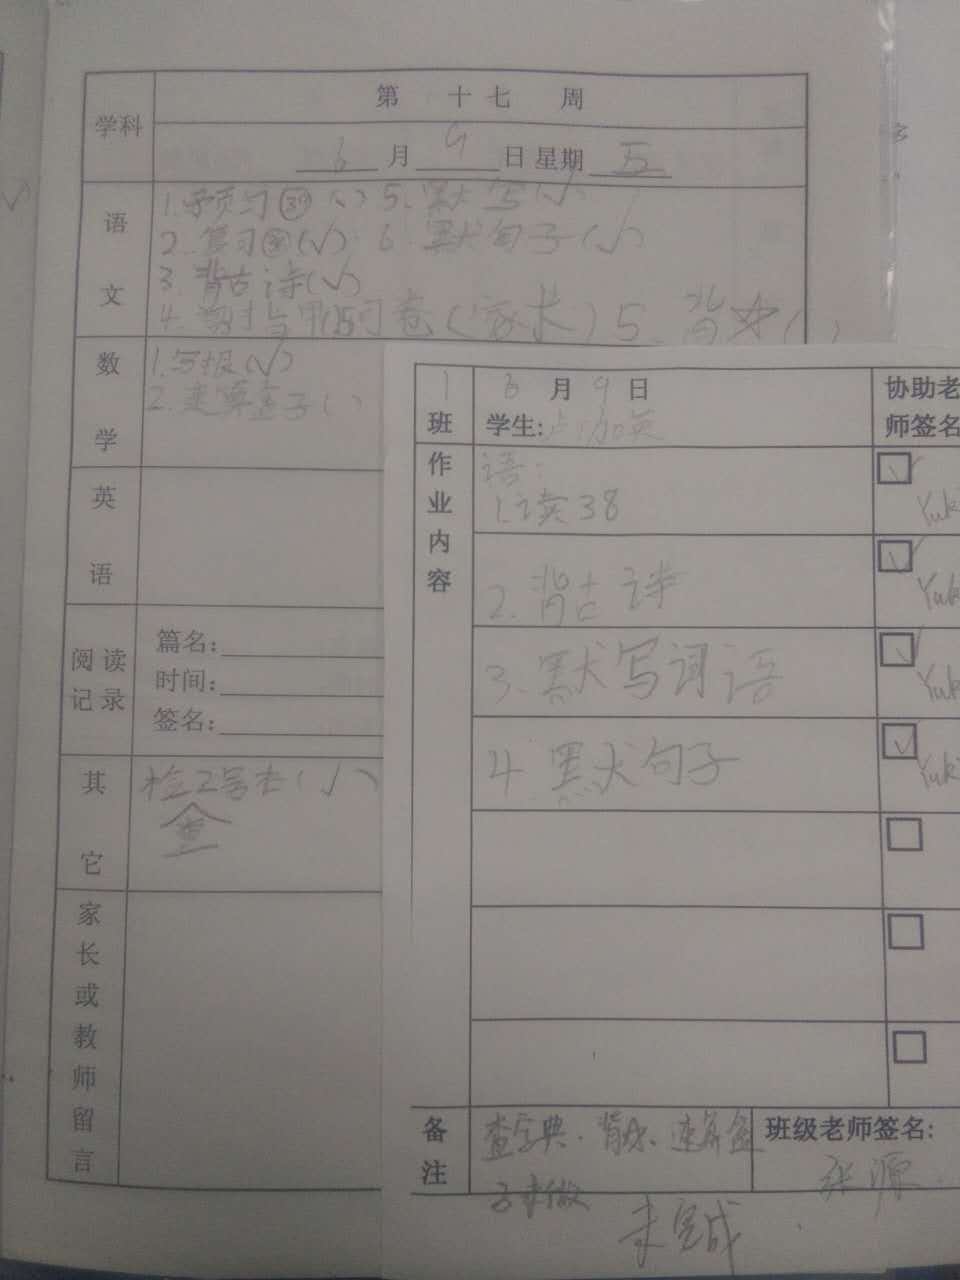 学科
第 十七 周
6 月 9 日 星期 五
语文
1.预习㊴( ) 5.默写(√)
2.复习 (√) 6.默句子(√)
3.背古诗(√)
4. 卷(家长) 5.背 ( )
数学
1.写报(√)
2. 算盒子( )
英语
阅读记录
篇名:
时间:
签名:
其它
(√)
查
家长或教师留言
1班
6 月 9 日
学生:
协助老
师签名
作业内容
语:
1.读38
√
Yuk
2.背古诗
√
Yuk
3.默写词语
√
Yuk
4.默句子
√
Yuk
备注
查字典、背 、 算盒
子未做
班级老师签名:
张源
未完成